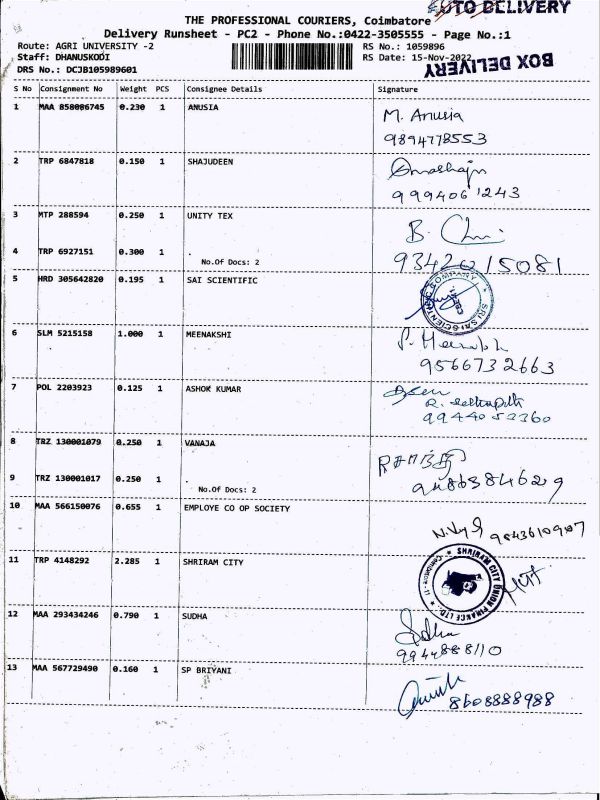 AUTO DELIVERY
THE PROFESSIONAL COURIERS, Coimbatore
Delivery Runsheet - PC2 - Phone No.:0422-3505555 - Page No.:1
Route: AGRI UNIVERSITY -2 RS No.: 1059896
Staff: DHANUSKODI RS Date: 15-Nov-2022
DRS No.: DCJB105989601 BOX DELIVERY
S No Consignment No Weight PCS Consignee Details Signature
1 MAA 858086745 0.230 1 ANUSIA M. Anusia
9894778553
2 TRP 6847818 0.150 1 SHAJUDEEN
9994061243
3 MTP 288594 0.250 1 UNITY TEX B.
4 TRP 6927151 0.300 1 No.Of Docs: 2 9342015081
5 HRD 305642820 0.195 1 SAI SCIENTIFIC SRI SAI SCIENTIFIC COMPANY
6 SLM 5215158 1.000 1 MEENAKSHI
9566732663
7 POL 2203923 0.125 1 ASHOK KUMAR
8 TRZ 130001079 0.250 1 VANAJA
9 TRZ 130001017 0.250 1 No.Of Docs: 2
10 MAA 566150076 0.655 1 EMPLOYE CO OP SOCIETY
11 TRP 4148292 2.285 1 SHRIRAM CITY SHRIRAM CITY UNION FINANCE LTD. Coimbatore - 11
12 MAA 293434246 0.790 1 SUDHA Sudha
9944888110
13 MAA 567729490 0.160 1 SP BRIYANI
8608888988